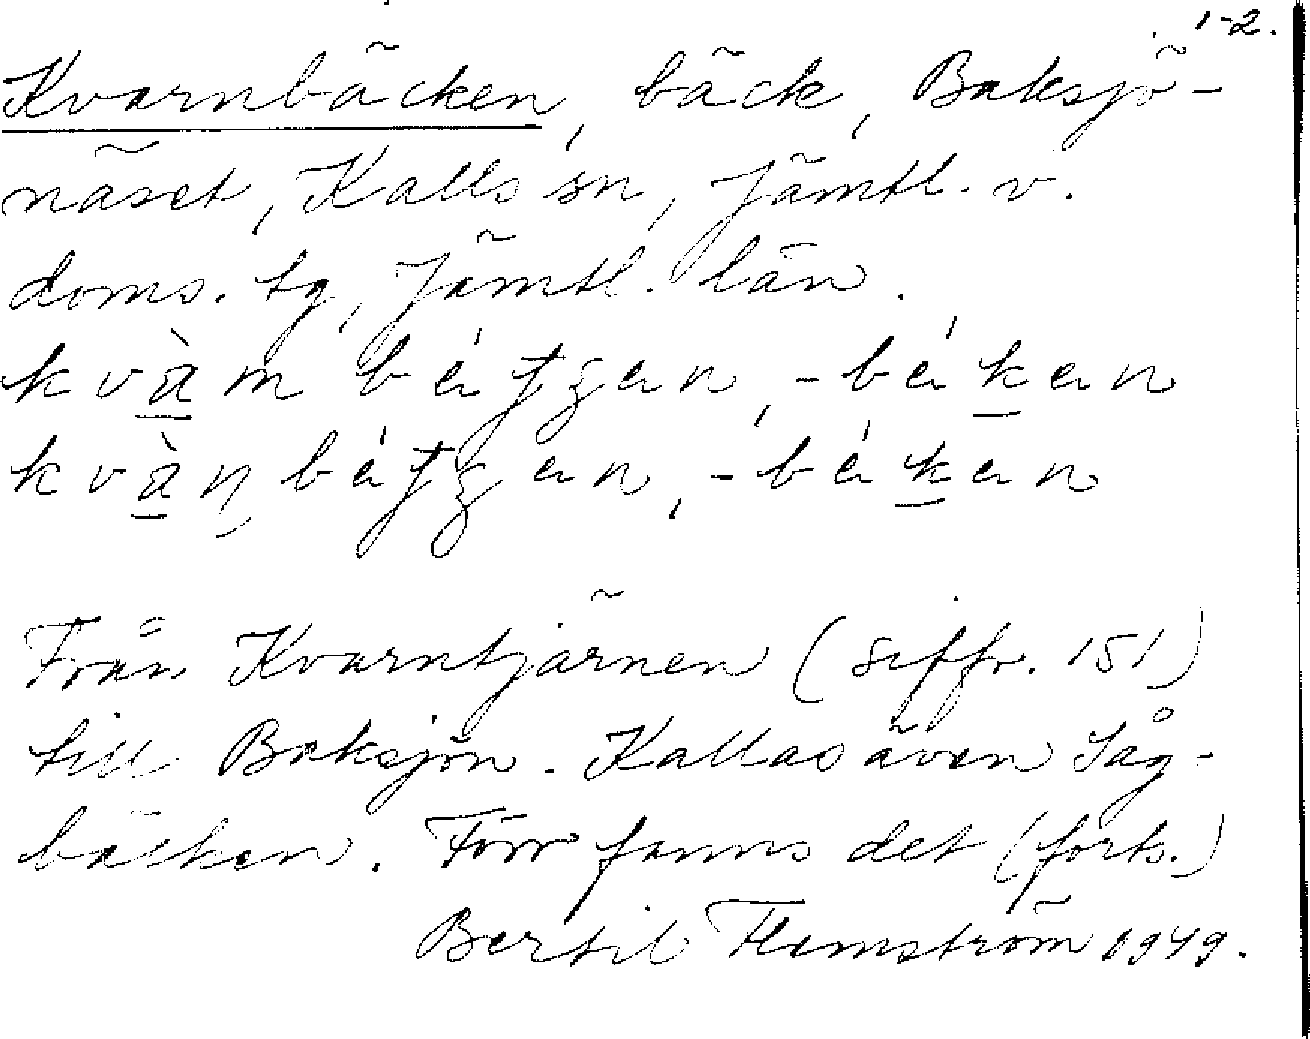 1-2.
Kvarnbäcken, bäck, Baksjö-
näset, Kalls sn, Jämtl. v.
doms. tg, Jämtl. län.
Från Kvarntjärnen (siffr. 151)
till Baksjön. Kallas även Såg-
bäcken. Förr fanns det (forts.)
Bertil Flemström 1949.